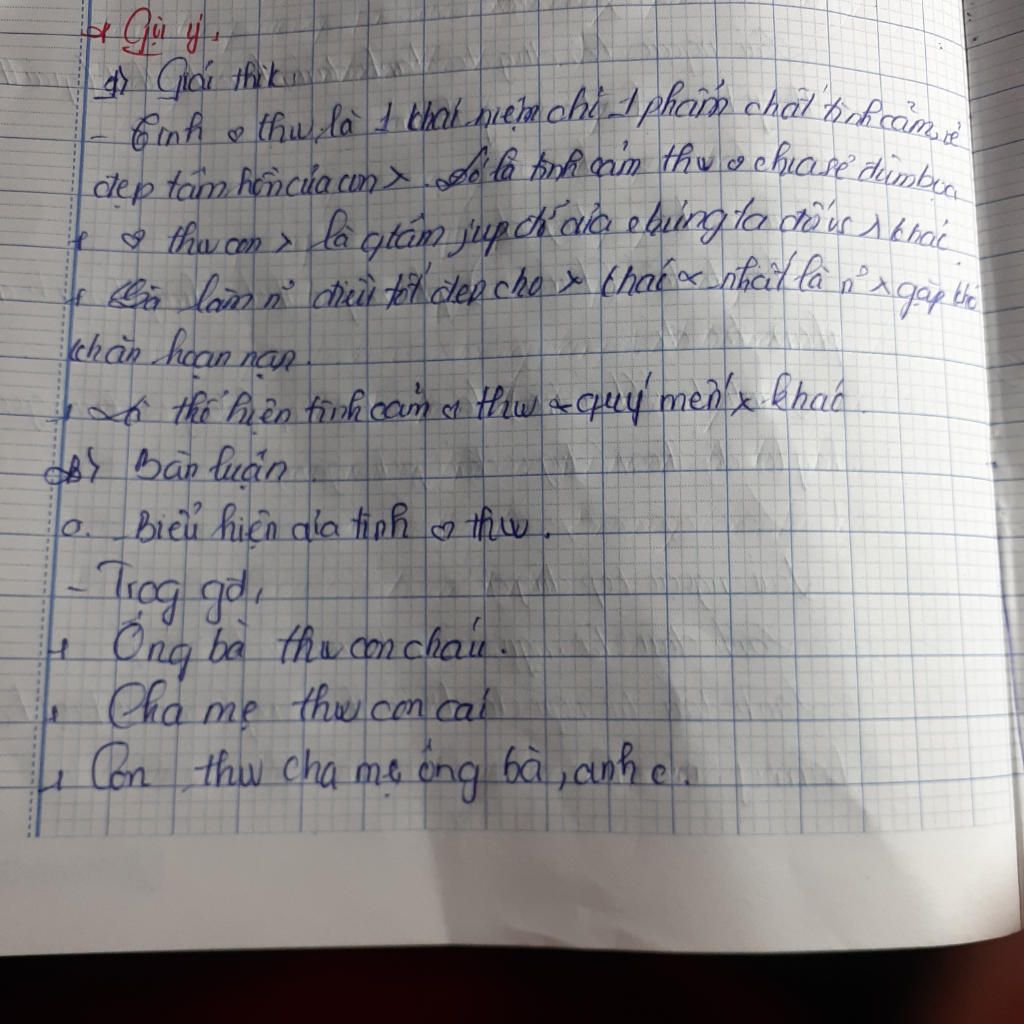 * Gợi ý.
1) Giải thik
- Tình ♡ thw là 1 khái niệm chỉ 1 phẩm chất tình cảm, vẻ
đẹp tâm hồn của con x. đó là tình cảm thw ♡ chia sẻ đùm bọc
+ ♡ thw con x là q tâm júp đỡ của chúng ta đối vs x khác
+ Là làm n~ điều tốt đẹp cho x khác & nhất là n~ x gặp khó
khăn hoạn nạn.
+ thể hiện tình cảm ♡ thw & quý mến x khác
B) Bàn luận
a. Biểu hiện của tình ♡ thw.
- Trog gđ,
+ Ông bà thw con cháu.
+ Cha mẹ thw con cái
+ Con thw cha mẹ ông bà, anh c.